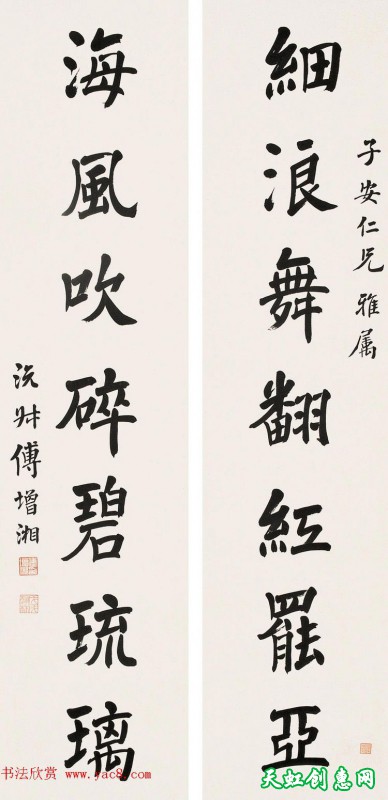 子安仁兄雅属
細浪舞翻紅罷亞
海風吹碎碧琉璃
沅叔傅增湘
书法欣赏 www.yac8.com
天虹创惠网